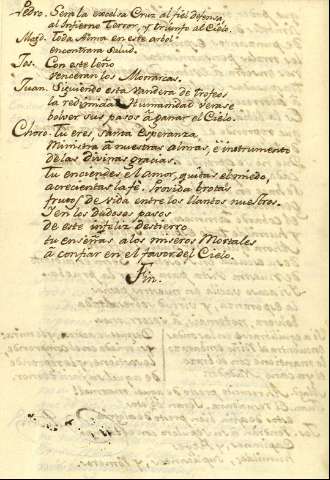 Pedro. Sera la excelsa Cruz al fiel defensa,
al infierno Terror, y triunfo al Cielo.
Magd. Toda Alma en este arbol
encontrara salud.
Jos. Con este leño
venceran los Monarcas.
Juan. Siguiendo esta vandera de trofeos
la redimida Humanidad verase
bolver sus pasos à ganar el Cielo.
Choro. Tu eres, Santa Esperanza,
Ministra à nuestras almas, è instrumento
de las divinas gracias.
Tu enciendes el Amor, quitas el miedo,
acrecientas la fè. Provida brotas
frutos de vida entre los llantos nuestros.
Y en los dudosos pasos
de este infeliz destierro
tu enseñas a los miseros Mortales
à confiar en el favor del Cielo.
Fin.